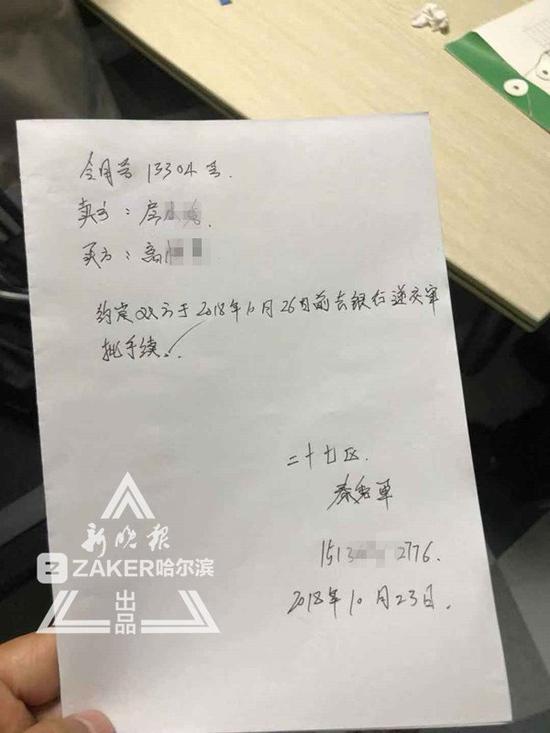 合同号 13304号.
卖方：房
买方：高
约定双方于2018年10月26日前去银行递交审
批手续.
二十七区.
秦 军
1513 2776.
2018年10月23日.
新晚报
Z ZAKER哈尔滨
出品